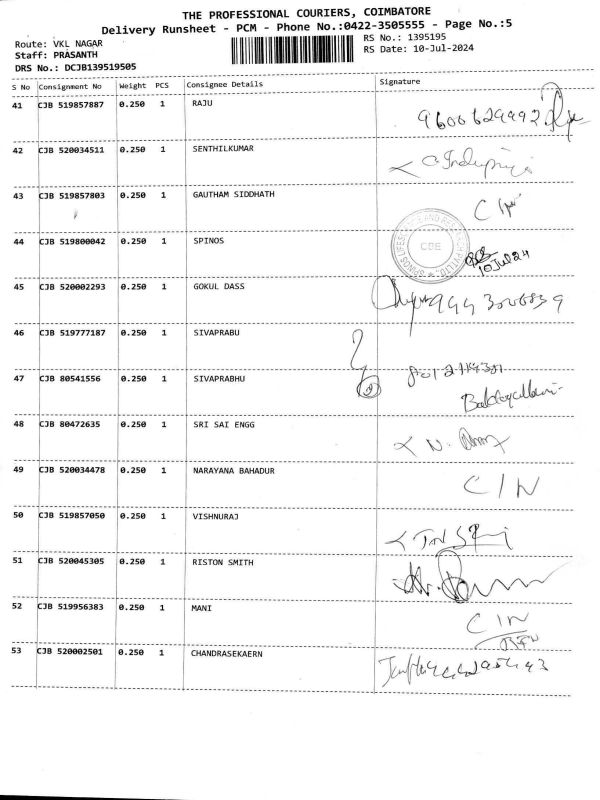 THE PROFESSIONAL COURIERS, COIMBATORE
Delivery Runsheet - PCM - Phone No.:0422-3505555 - Page No.:5
Route: VKL NAGAR
RS No.: 1395195
Staff: PRASANTH
RS Date: 10-Jul-2024
DRS No.: DCJB139519505
S No Consignment No Weight PCS Consignee Details Signature
41 CJB 519857887 0.250 1 RAJU
9600629992
42 CJB 520034511 0.250 1 SENTHILKUMAR
43 CJB 519857803 0.250 1 GAUTHAM SIDDHATH
44 CJB 519800042 0.250 1 SPINOS
CBE
10 Jul 24
45 CJB 520002293 0.250 1 GOKUL DASS
46 CJB 519777187 0.250 1 SIVAPRABU
47 CJB 80541556 0.250 1 SIVAPRABHU
48 CJB 80472635 0.250 1 SRI SAI ENGG
49 CJB 520034478 0.250 1 NARAYANA BAHADUR
C/N
50 CJB 519857050 0.250 1 VISHNURAJ
51 CJB 520045305 0.250 1 RISTON SMITH
52 CJB 519956383 0.250 1 MANI
C/N
53 CJB 520002501 0.250 1 CHANDRASEKAERN